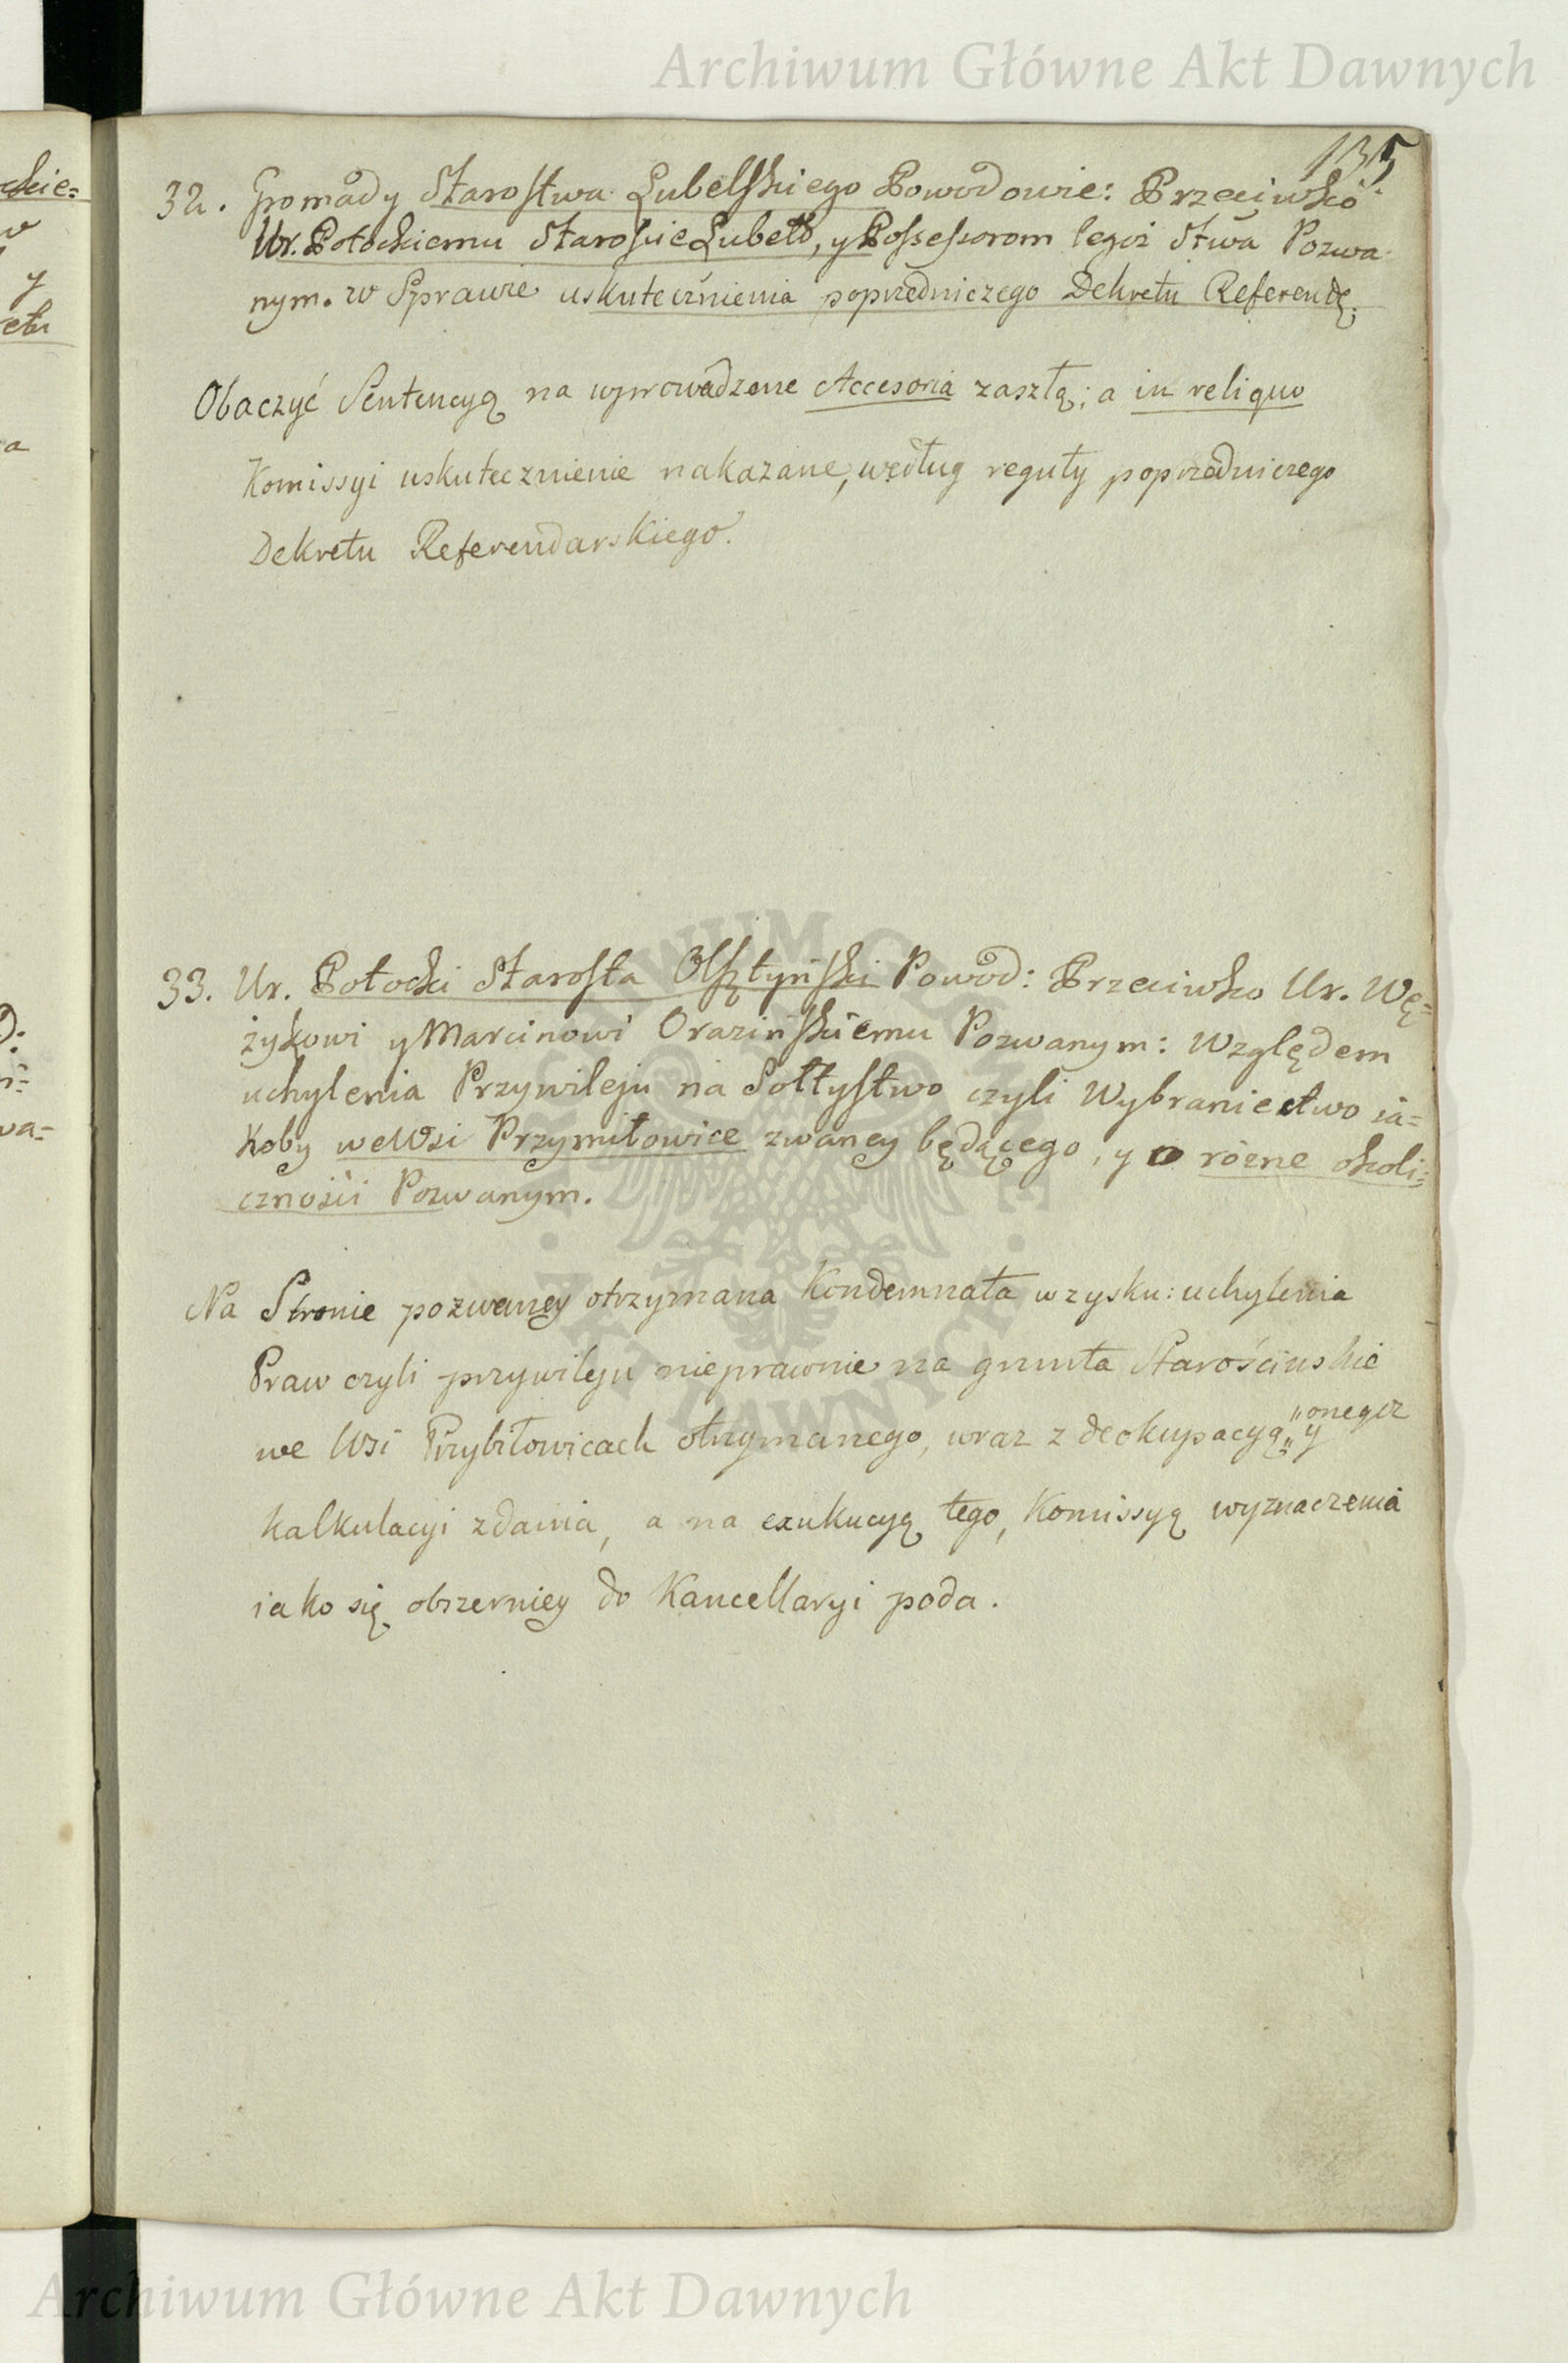 Archiwum Główne Akt Dawnych
135
32. Gromady Starostwa Lubelskiego Powodowie: Przeciwko
Ur. Potockiemu Staroście Lubelo, y Possessorom tegoż Stwa Pozwa-
nym. w Sprawie uskutecznienia poprzedniczego Dekretu Referendę.
Obaczyć Sentencyą na wprowadzone Accesoria zaszłą; a in reliquo
Komissyi uskutecznienie nakazane, według reguły poprzedniczego
Dekretu Referendarskiego.
33. Ur. Potocki Starosta Olsztyński Powod: Przeciwko Ur. Wę=
żykowi y Marcinowi Orazińskiemu Pozwanym: Względem
uchylenia Przywileju na Sołtystwo czyli Wybraniectwo ia=
koby we Wsi Przymiłowice zwaney będącego, y o rózne okoli=
czności Pozwanym.
Na Stronie pozwaney otrzymana Kondemnata w zysku: uchylenia
Praw czyli przywileju nieprawnie na grunta Starościńskie
we Wsi Przybiłowicach otrzymanego, wraz z deokupacyą „onegoż
„y
kalkulacyi zdania, a na exukucyą tego, Komissyą wyznaczenia
iako się obszerniey do Kancellaryi poda.
Archiwum Główne Akt Dawnych